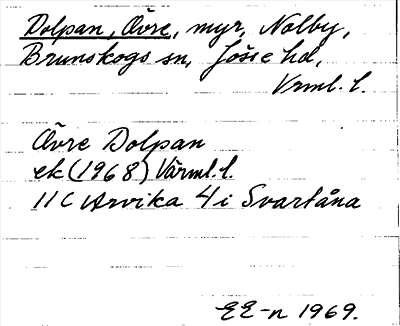 Dolpan, Övre, myr, Nolby,
Brunskogs sn, Jösse hd,
Vrml. l.
Övre Dolpan
ek (1968) Värml. l.
11C Arvika 4 i Svartåna
EE-n 1969.